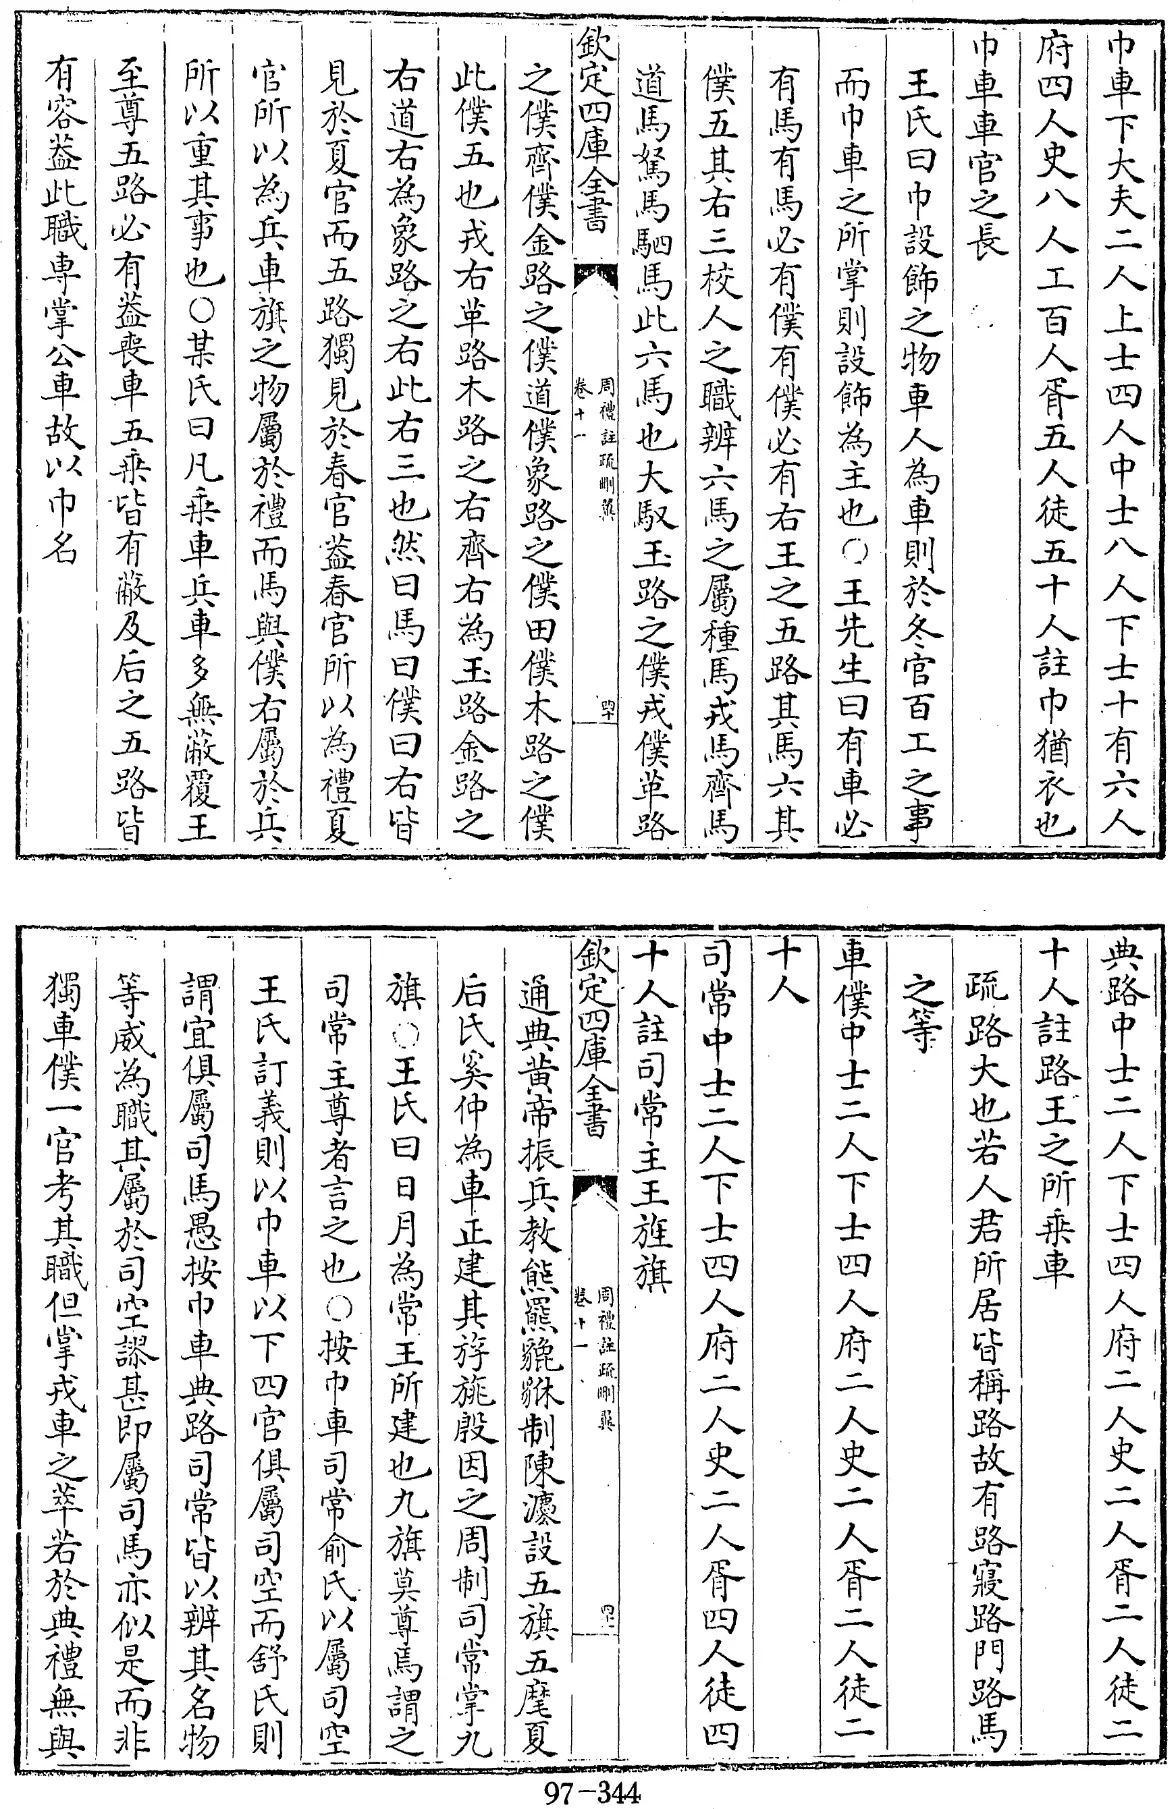 巾車下大夫二人上士四人中士八人下士十有六人
府四人史八人工百人胥五人徒五十人註巾猶衣也
巾車車官之長
王氏曰巾設飾之物車人為車則於冬官百工之事
而巾車之所掌則設飾為主也○王先生曰有車必
有馬有馬必有僕有僕必有右王之五路其馬六其
僕五其右三校人之職辨六馬之屬種馬戎馬齊馬
道馬駑馬駟馬此六馬也大馭玉路之僕戎僕革路
欽定四庫全書
周禮註疏刪翼
卷十一
四十
之僕齊僕金路之僕道僕象路之僕田僕木路之僕
此僕五也戎右革路木路之右齊右為玉路金路之
右道右為象路之右此右三也然曰馬曰僕曰右皆
見於夏官而五路獨見於春官葢春官所以為禮夏
官所以為兵車旗之物屬於禮而馬與僕右屬於兵
所以重其事也○某氏曰凡乘車兵車多無蔽覆王
至尊五路必有葢喪車五乘皆有蔽及后之五路皆
有容葢此職專掌公車故以巾名
典路中士二人下士四人府二人史二人胥二人徒二
十人註路王之所乘車
疏路大也若人君所居皆稱路故有路寢路門路馬
之等
車僕中士二人下士四人府二人史二人胥二人徒二
十人
司常中士二人下士四人府二人史二人胥四人徒四
十人註司常主王旌旗
欽定四庫全書
周禮註疏刪翼
卷十一
四十一
通典黄帝振兵教熊羆貔貅制陳灋設五旗五麾夏
后氏奚仲為車正建其斿旐殷因之周制司常掌九
旗○王氏曰日月為常王所建也九旗莫尊焉謂之
司常主尊者言之也○按巾車司常俞氏以屬司空
王氏訂義則以巾車以下四官俱屬司空而舒氏則
謂宜俱屬司馬愚按巾車典路司常皆以辨其名物
等威為職其屬於司空謬甚即屬司馬亦似是而非
獨車僕一官考其職但掌戎車之萃若於典禮無與
97-344